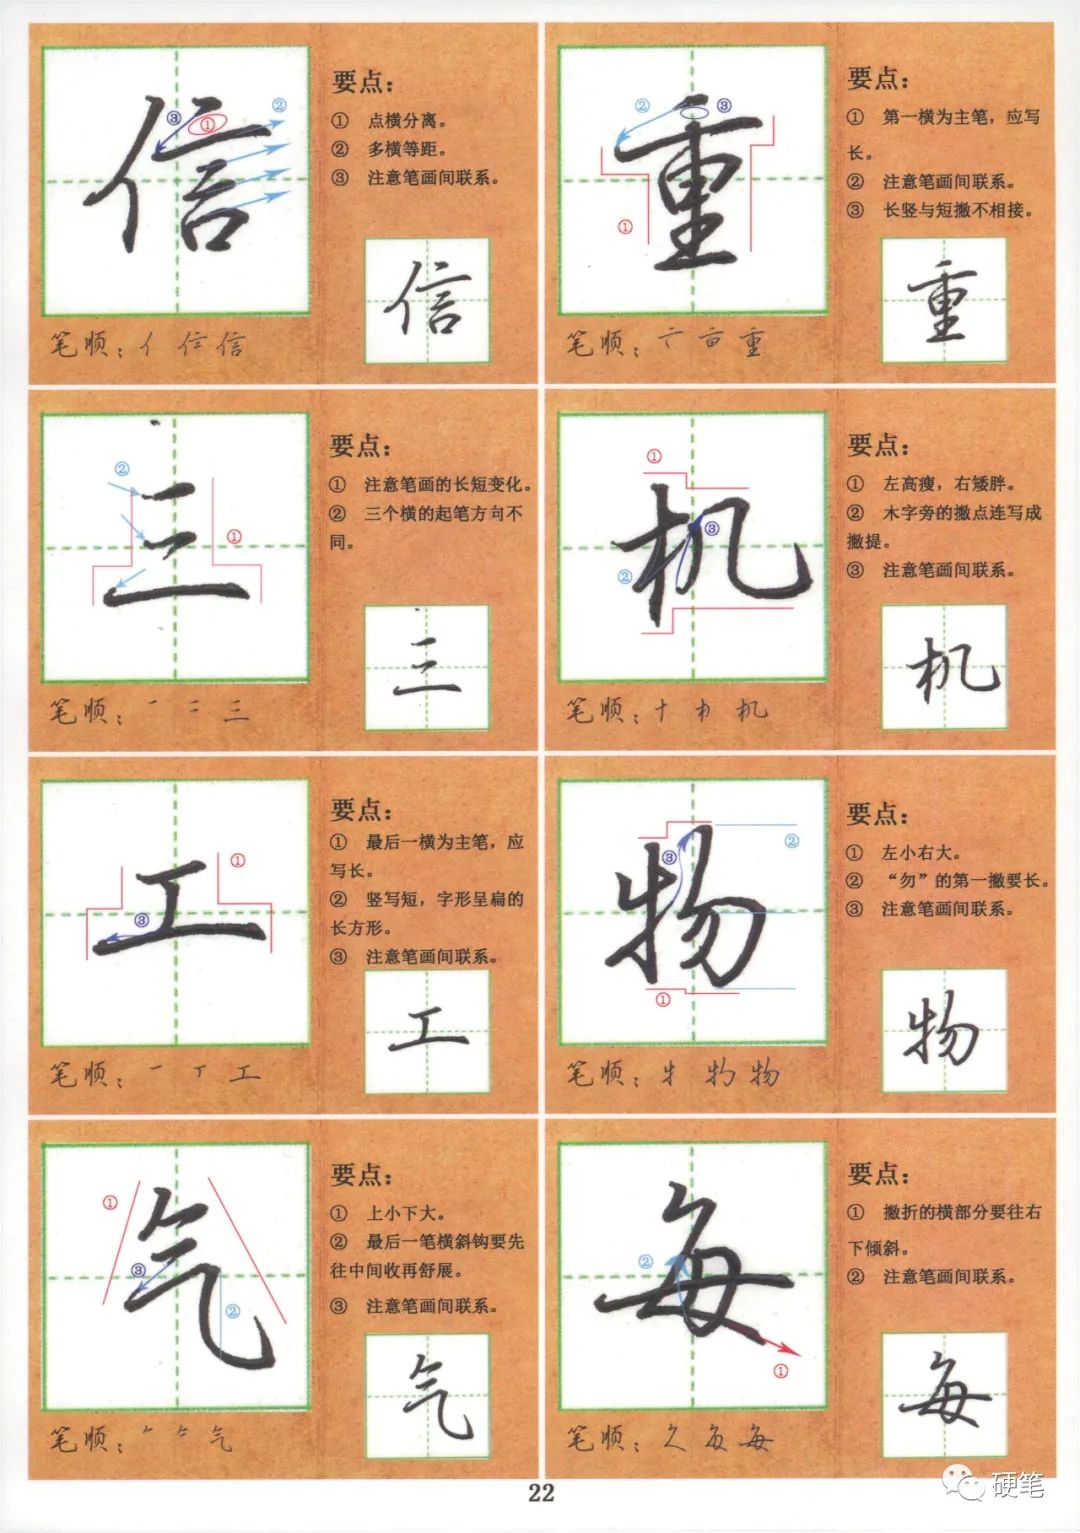 信
①
②
③
要点：
① 点横分离。
② 多横等距。
③ 注意笔画间联系。
信
笔顺：亻 信 信
重
①
②
③
要点：
① 第一横为主笔，应写
长。
② 注意笔画间联系。
③ 长竖与短撇不相接。
重
笔顺：重
三
①
②
要点：
① 注意笔画的长短变化。
② 三个横的起笔方向不
同。
三
笔顺：一 二 三
机
①
②
③
要点：
① 左高瘦，右矮胖。
② 木字旁的撇点连写成
撇提。
③ 注意笔画间联系。
机
笔顺：十 木 机
工
①
③
要点：
① 最后一横为主笔，应
写长。
② 竖写短，字形呈扁的
长方形。
③ 注意笔画间联系。
工
笔顺：一 丅 工
物
①
②
③
①
要点：
① 左小右大。
② “勿”的第一撇要长。
③ 注意笔画间联系。
物
笔顺：牜 物
气
①
②
③
要点：
① 上小下大。
② 最后一笔横斜钩要先
往中间收再舒展。
③ 注意笔画间联系。
气
笔顺：𠂉 气
每
①
②
要点：
① 撇折的横部分要往右
下倾斜。
② 注意笔画间联系。
每
笔顺：每 每
22
硬笔